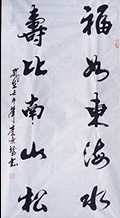 福如東海水
壽比南山松